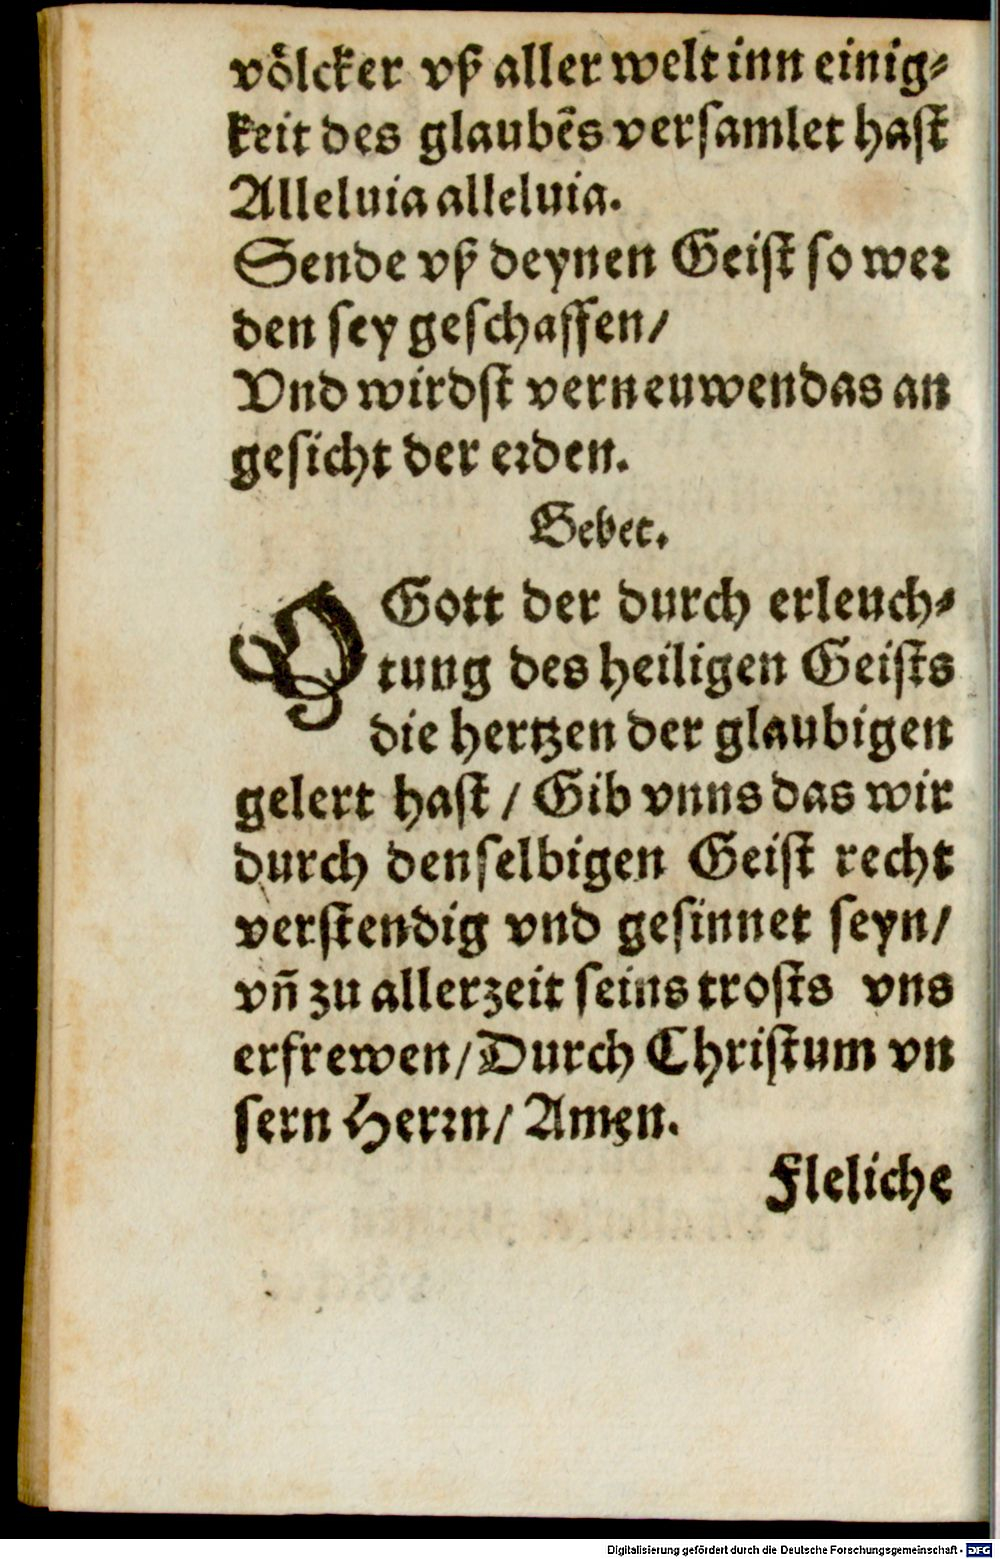 voͤlcker vß aller welt inn einig⸗
keit des glaubẽs versamlet hast
Alleluia alleluia.
Sende vß deynen Geist so wer
den sey geschaffen/
Vnd wirdst verneuwen das an
gesicht der erden.
Gebet.
O Gott der durch erleuch⸗
tung des heiligen Geists
die hertzen der glaubigen
gelert hast / Gib vnns das wir
durch denselbigen Geist recht
verstendig vnd gesinnet seyn/
vñ zu allerzeit seins trosts vns
erfrewen/ Durch Christum vn
sern Herrn/ Amen.
Fleliche
Digitalisierung gefördert durch die Deutsche Forschungsgemeinschaft - DFG